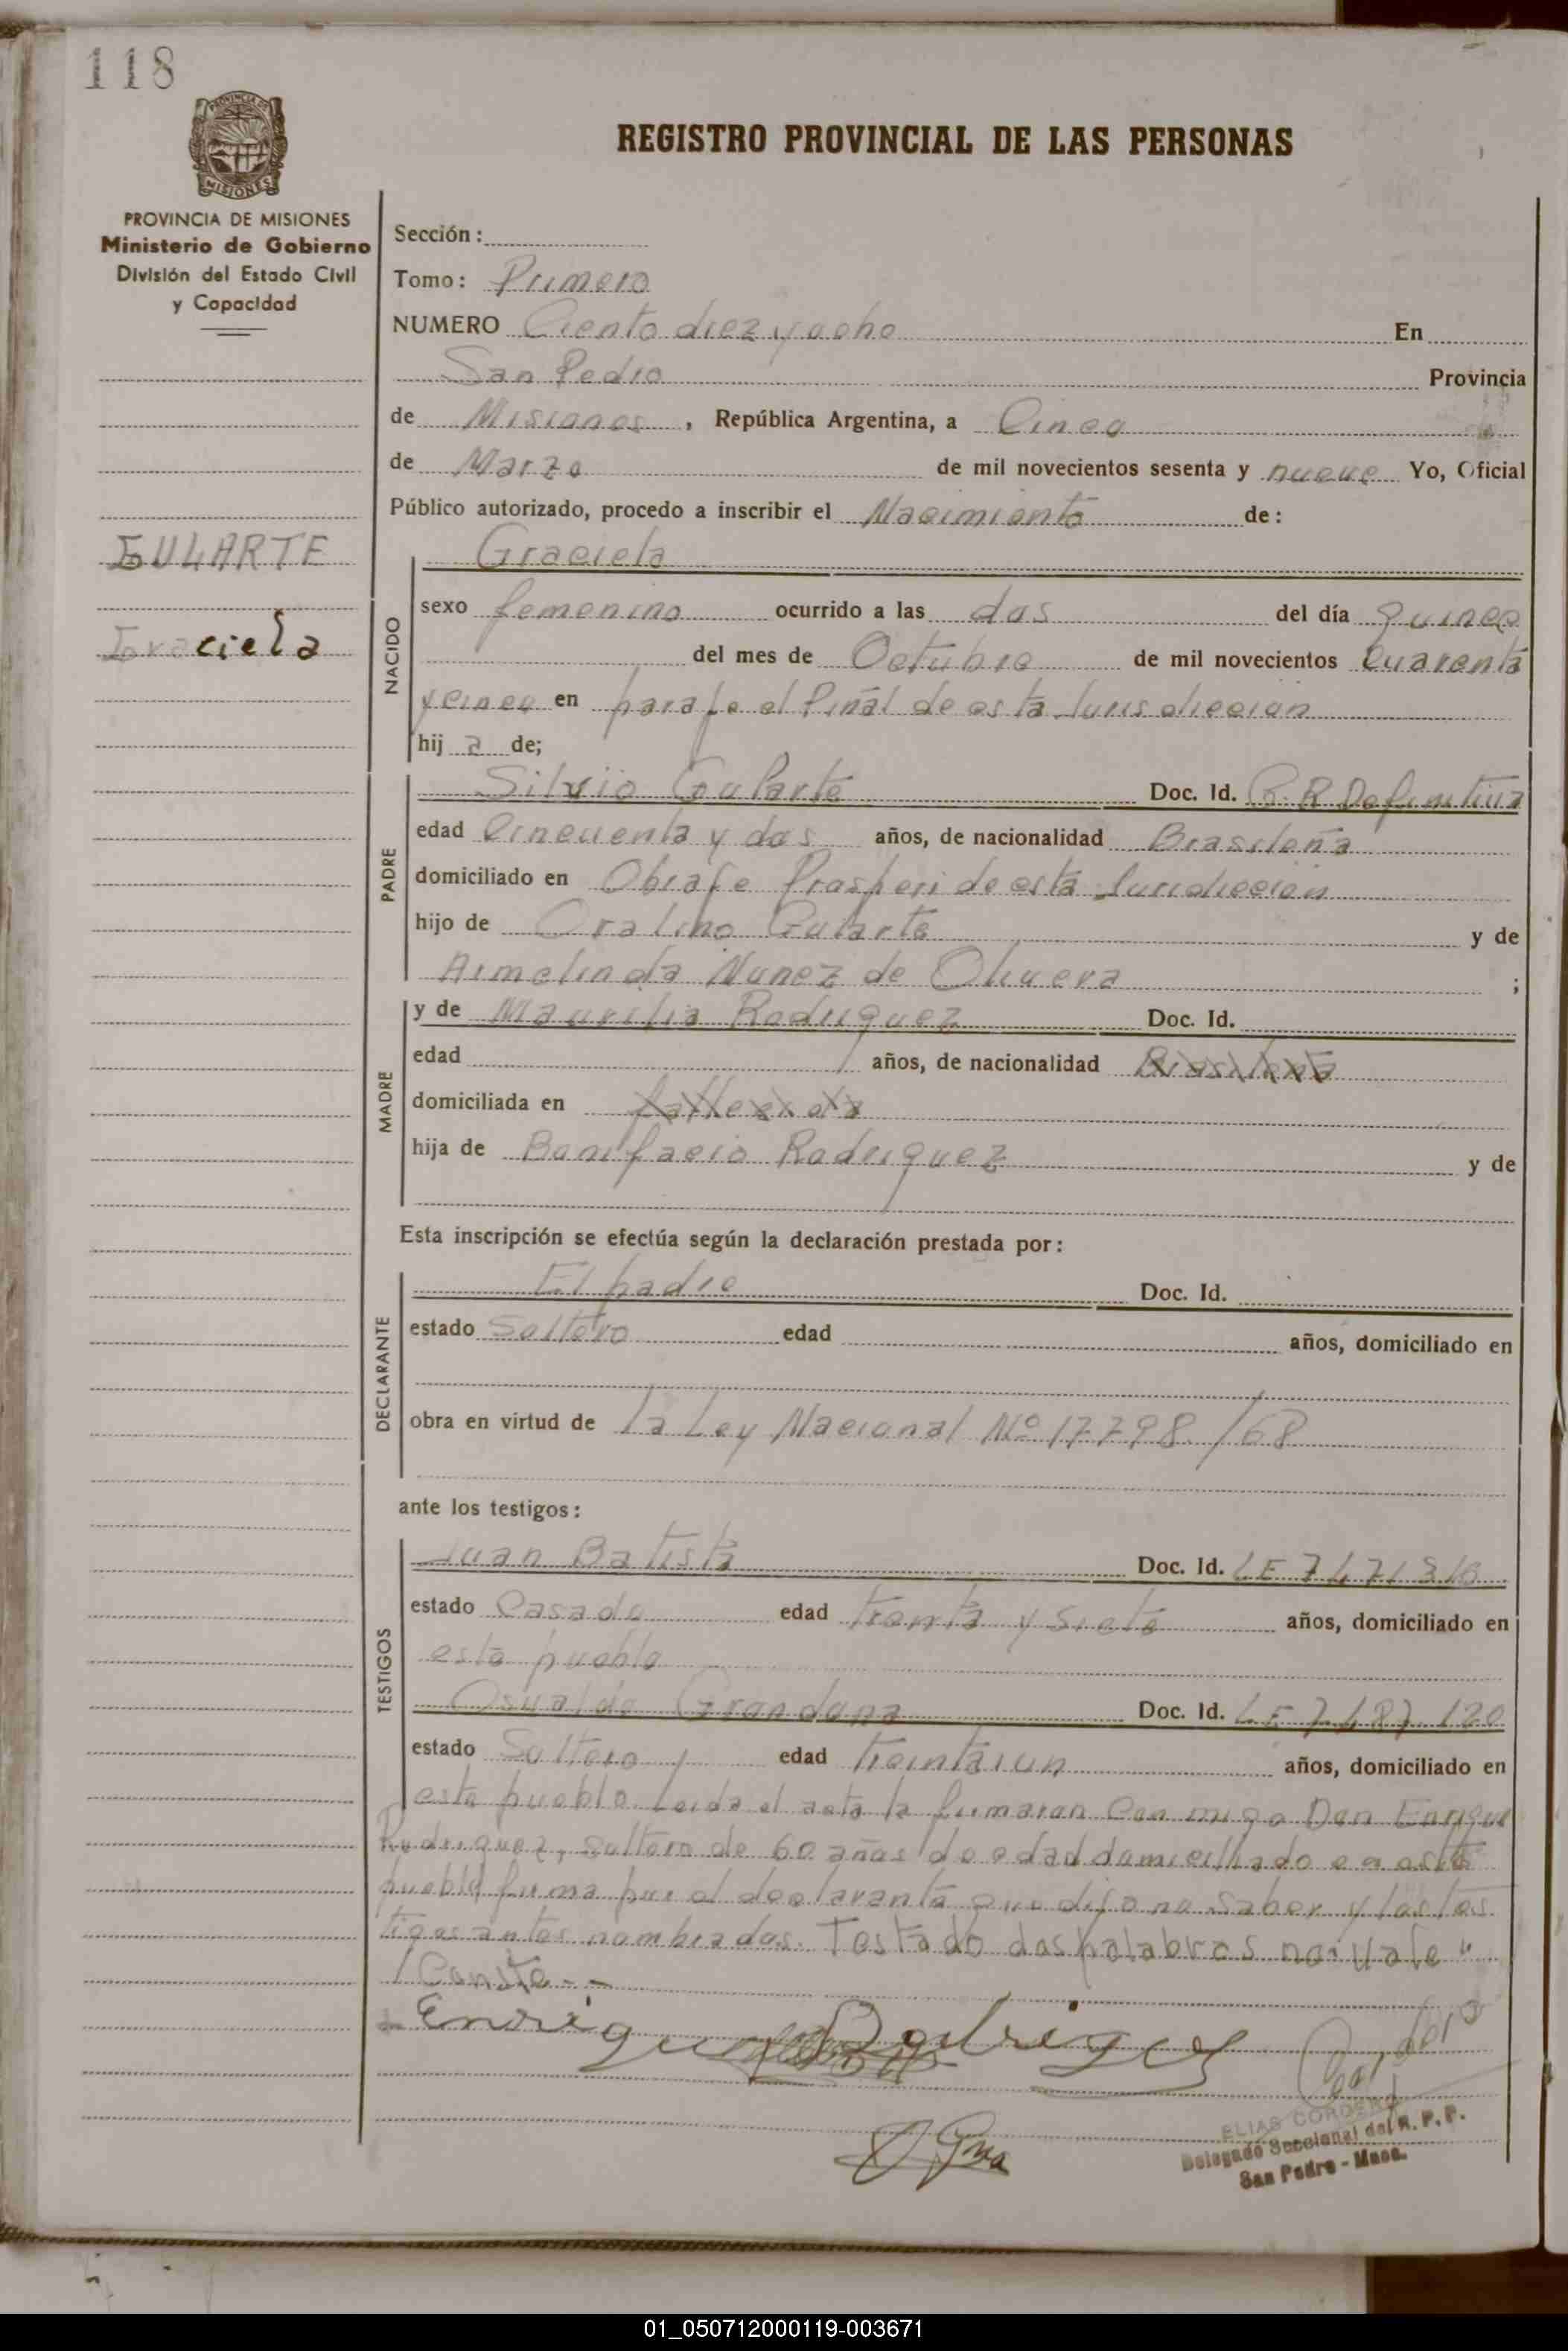 118
PROVINCIA DE MISIONES
REGISTRO PROVINCIAL DE LAS PERSONAS
PROVINCIA DE MISIONES
Ministerio de Gobierno
División del Estado Civil
y Capacidad
GULARTE
Graciela
Sección:
Tomo: Primero
NUMERO Ciento diez y ocho En
San Pedro Provincia
de Misiones, República Argentina, a Cinco
de Marzo de mil novecientos sesenta y nueve Yo, Oficial
Público autorizado, procedo a inscribir el Nacimiento de:
NACIDO
Graciela
sexo femenino ocurrido a las dos del día quince
del mes de Octubre de mil novecientos Cuarenta
y cinco en paraje el Piñal de esta Jurisdiccion
hij a de;
PADRE
Silvio Gularte Doc. Id. C.R Definitiva
edad Cincuenta y dos años, de nacionalidad Brasileña
domiciliado en Obraje Prosperi de esta Jurisdiccion
hijo de Oralino Gularte y de
Armelinda Nunez de Olivera ;
MADRE
y de Maurilia Rodriguez Doc. Id.
edad años, de nacionalidad Brasileña
domiciliada en
hija de Bonifacio Rodriguez y de
Esta inscripción se efectúa según la declaración prestada por:
DECLARANTE
El padre Doc. Id.
estado Soltero edad años, domiciliado en
obra en virtud de la Ley Nacional Nº 17798/68
ante los testigos:
TESTIGOS
Juan Batista Doc. Id. LE 7471
estado Casado edad treinta y siete años, domiciliado en
este pueblo
Osvaldo Doc. Id. LE 7.487.120
estado Soltero edad treintaiun años, domiciliado en
este pueblo Leida el acta la firmaran con migo Don Enrique
Rodriguez, soltero de 60 años de edad domicilliado en este
pueblo firma por el declarante que dijo no saber y los tes
tigos antes nombrados. Testado dos palabras no vale"
Conste--
Enrique Rodriguez
Cordero
ELIAS CORDERO
Delegado Seccional del R. P. P.
San Pedro - Mnes.
01_050712000119-003671